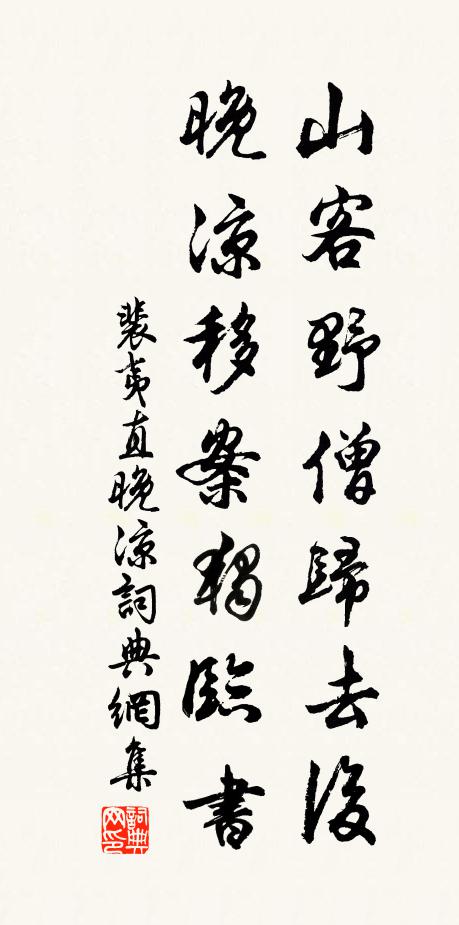 山客野僧歸去後
晚涼移案獨臨書
裴夷直晚涼詞典網集
詞典网印